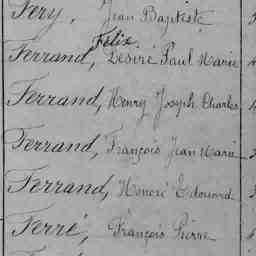 Fery, Jean Baptiste
Félix
Ferrand, Désiré Paul Marie
Ferrand, Henry Joseph Charles
Ferrand, François Jean Marie
Ferrand, Honoré Edouard
Ferré, François Pierre